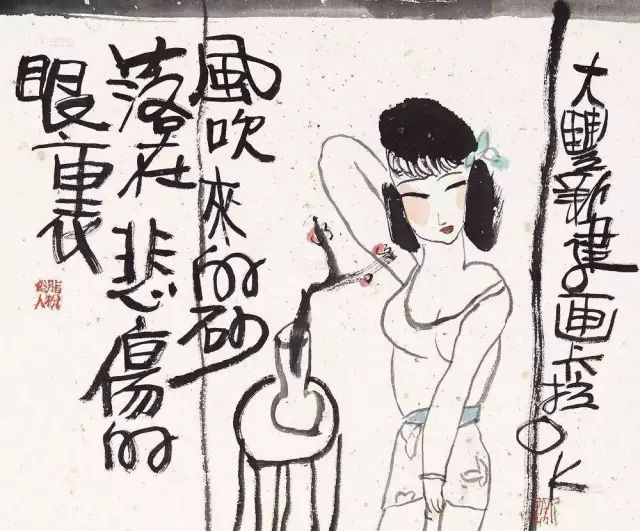 大豐新建画卡拉OK
風吹來的砂
落在悲傷的
眼裏